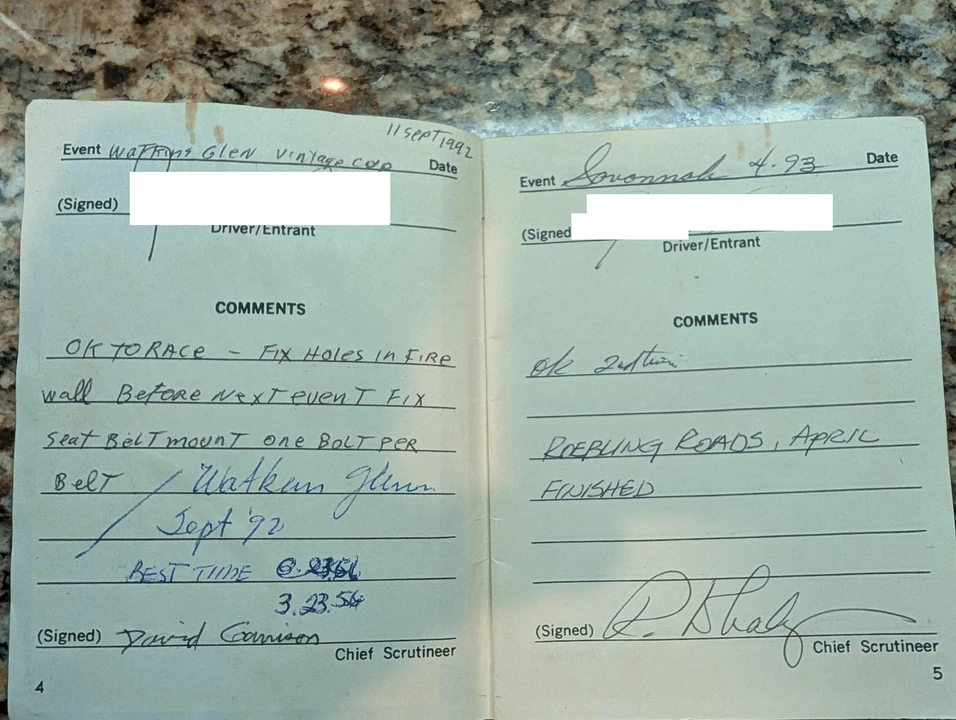 11 SEPT 1992
Event Watkins Glen Vintage Cup Date
(Signed)
Driver/Entrant
COMMENTS
OK TO RACE - FIX HOLES IN FIRE
wall BEFORE NEXT EVENT FIX
SEAT BELT MOUNT ONE BOLT PER
BELT / Watkins Glenn
Sept '92
BEST TIME
3.23.56
(Signed) David Garrison
Chief Scrutineer
4
Event Savannah 4.93 Date
(Signed
Driver/Entrant
COMMENTS
ok
ROEBLING ROADS, APRIL
FINISHED
(Signed)
Chief Scrutineer
5